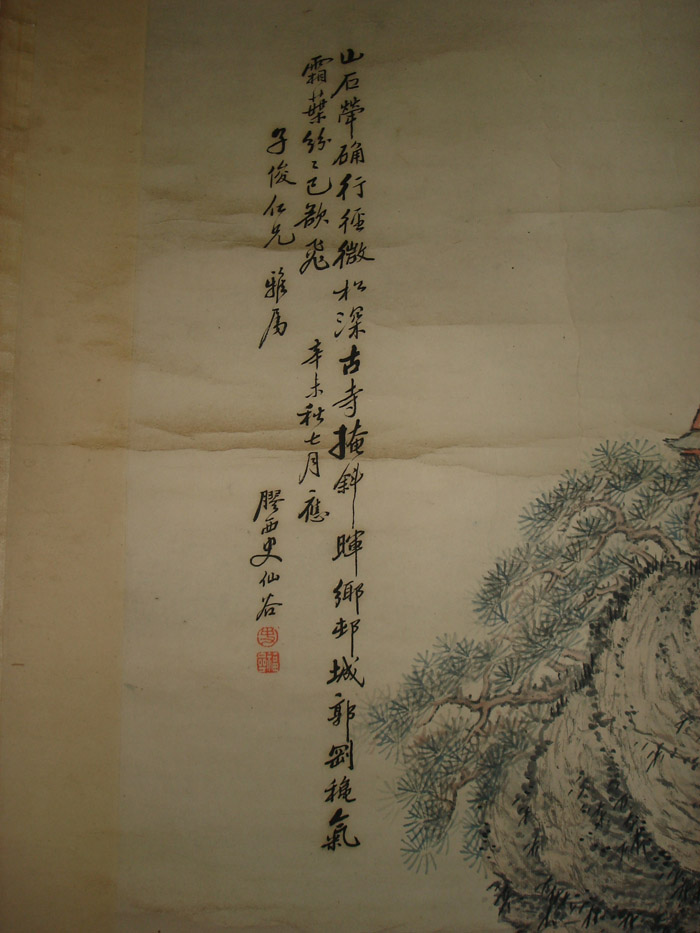 山石犖确行徑微松深古寺掩斜暉鄉邨城郭劚穐氣
霜葉紛〻已欲飛 辛未秋七月應
子俊仁兄 雅属
膠西史仙谷